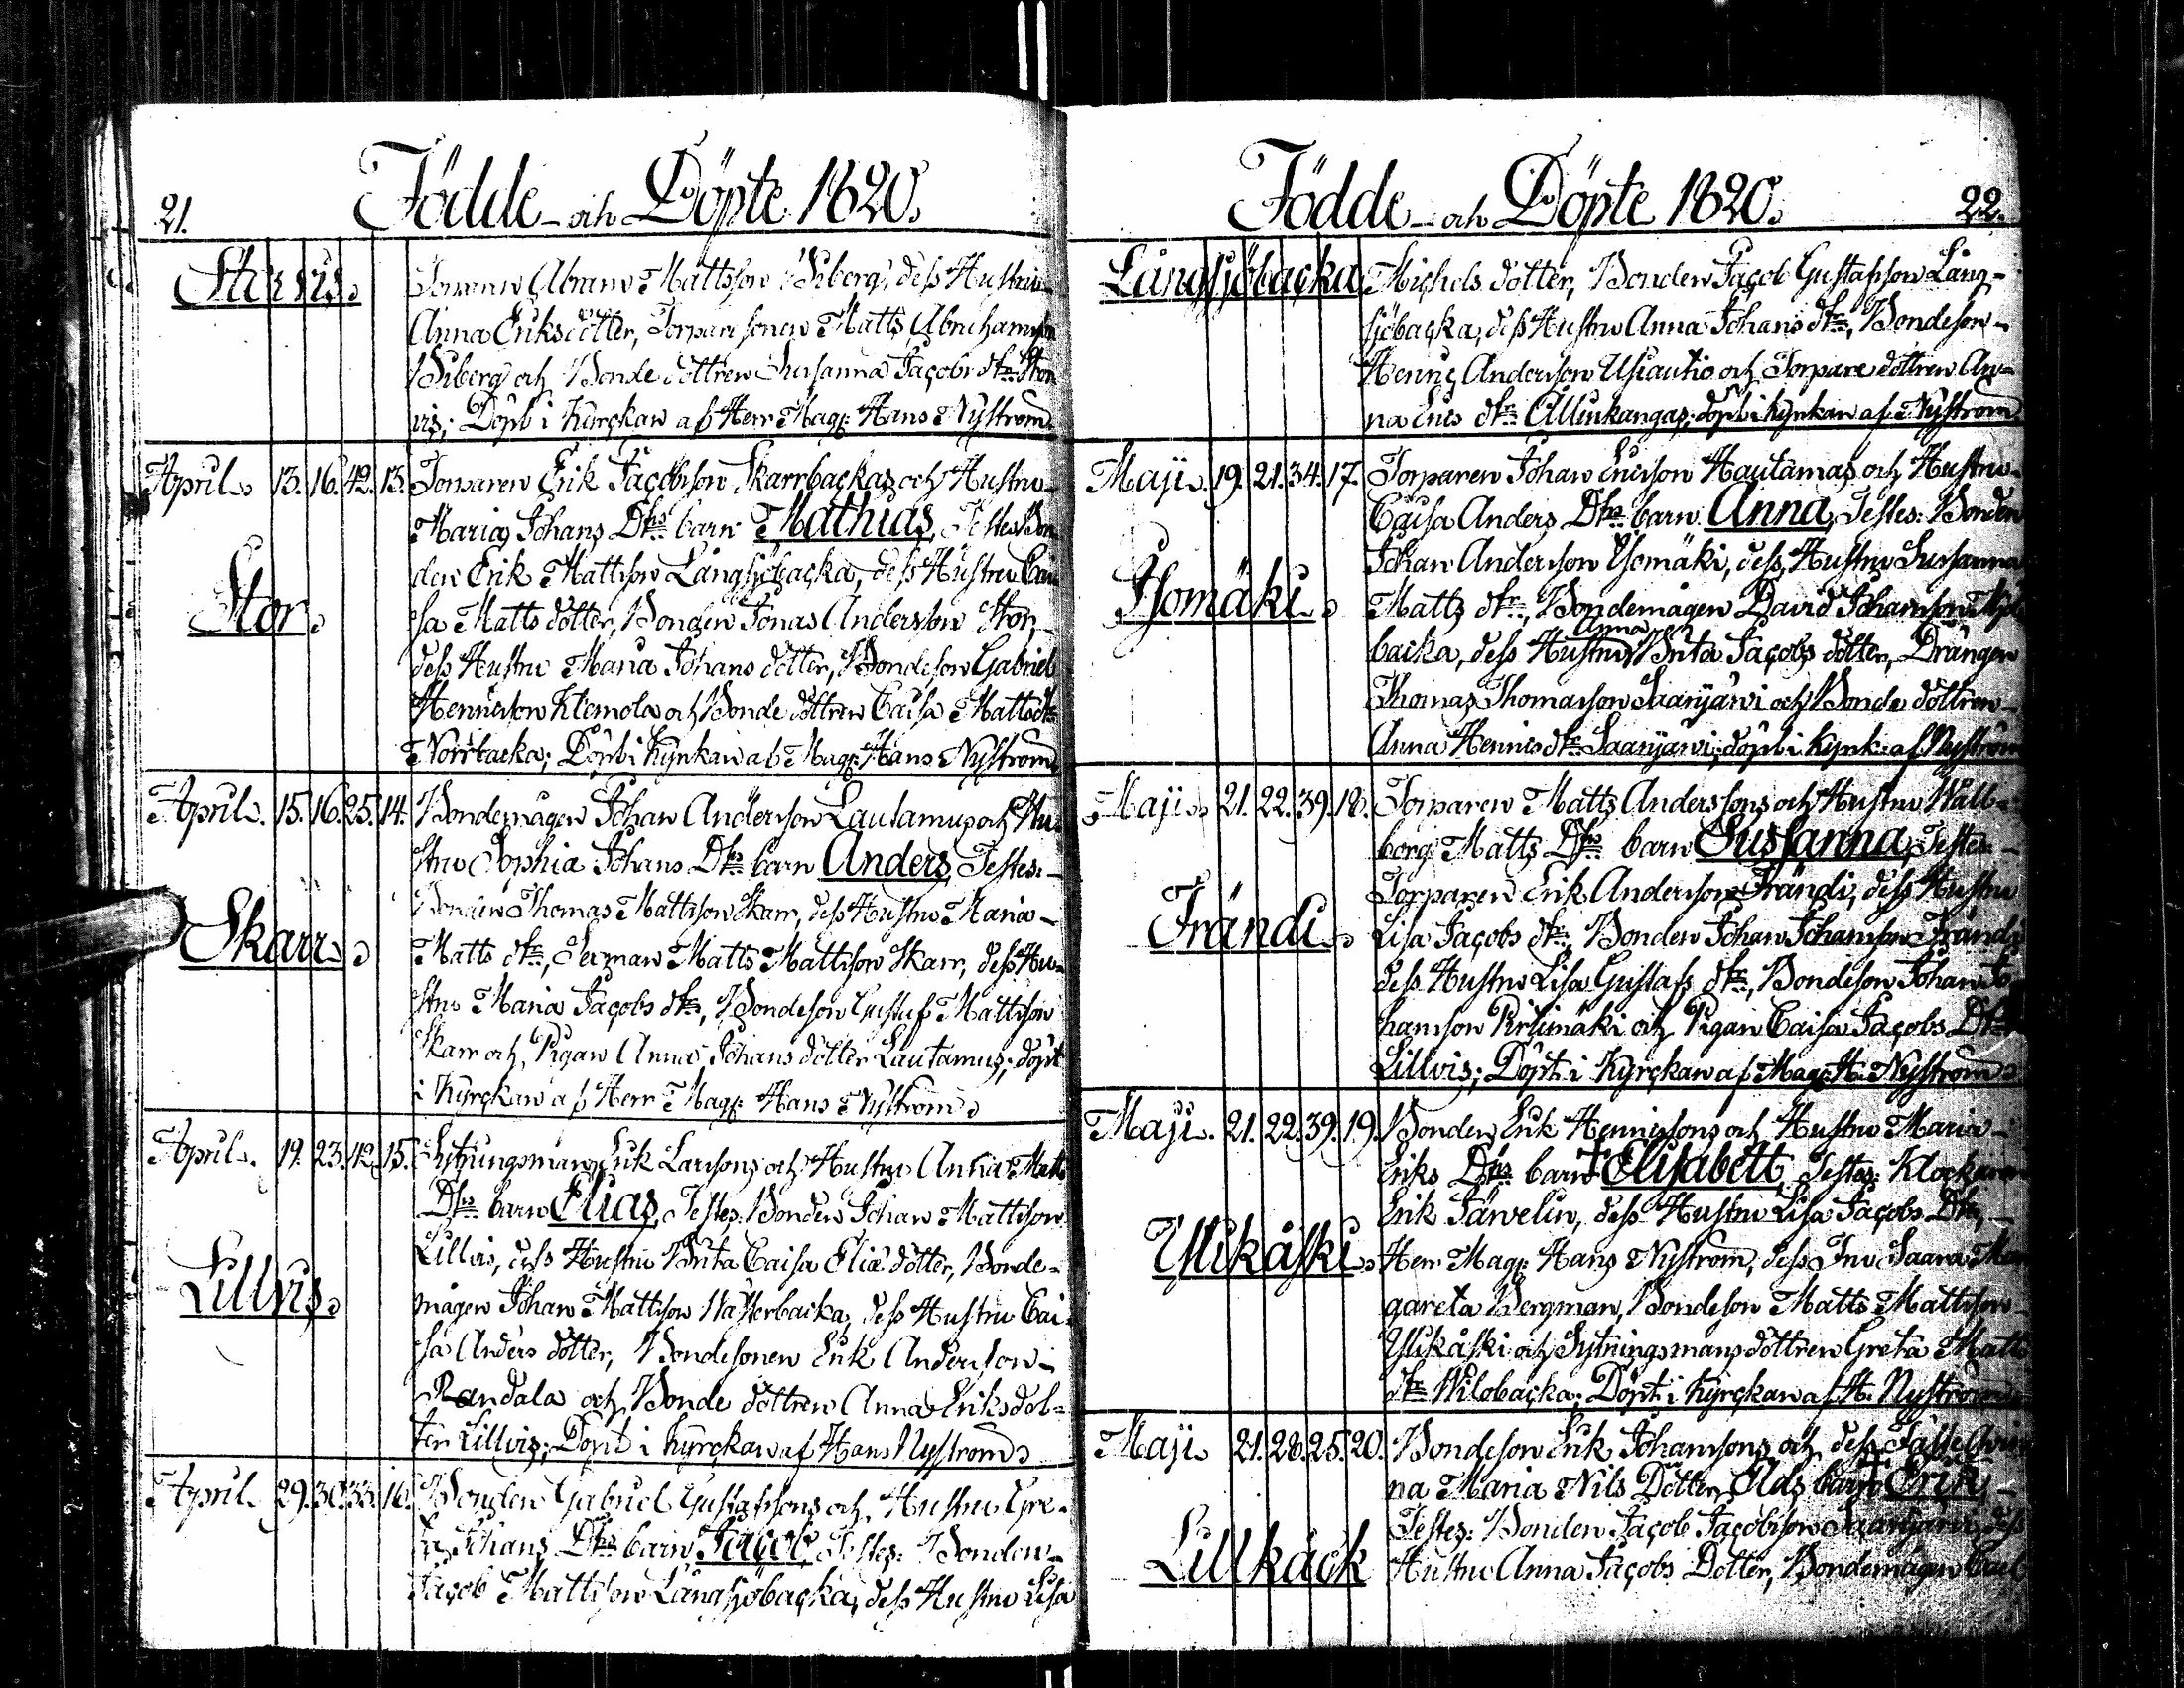 21.
Födde och Döpte 1820.
Storvis.
Abram Mattsson Wiberg, dess Hustru
Anna Eriksdotter, Torparesonen Matts Abrahamsson
Wiberg och Bonde dottren Susanna Jacobs dtr Stor
vis; Döpt i Kyrckan af Herr Mag: Hans Nyström
April. 13. 16. 42. 13. Torparen Erik Jacobsson Skarrbackas och Hustru
Maria Johans Dtrs barn Mathias, Testes: Bon
den Erik Mattsson Långsjöbacka, dess Hustru Cai
sa Matts dotter, Bonden Jonas Andersson Stor,
dess Hustru Maria Johans dotter, Bondeson Gabriel
Hennisson Klemola och Bonde dottren Caisa Matts dtr
Norrbacka; Döpt i Kyrkan af Mag: Hans Nyström
Stor.
April. 15. 16. 25. 14. Bondemågen Johan Andersson Lautamus och Hu-
stru Sophia Johans Dtrs barn Anders, Testes:
Bonden Thomas Mattsson Skarr, dess Hustru Maria
Matts dtr, Sexman Matts Mattsson Skarr, dess Hu-
stru Maria Jacobs dtr, Bondeson Gustaf Mattsson
Skarr och Pigan Anna Johans dotter Lautamus; döpt
i Kyrckan af Herr Mag: Hans Nyström
Skarr.
April. 19. 23. 42. 15. Sytningsman Erik Larssons och Hustru Anna Matts
Dtrs barn Elias, Testes: Bonden Johan Mattsson
Lillvis, dess Hustru Brita Caisa Eliæ dotter, Bonde-
mågen Johan Mattsson Wästerbacka, dess Hustru Cai-
sa Anders dotter, Bondesonen Erik Andersson
Randala och Bonde dottren Anna Eriksdot-
ter Lillvis; Döpt i Kyrckan af Hans Nyström
Lillvis.
April. 29. 30. 33. 16. Bonden Gabriel Gustafssons och Hustru Gre-
ta Johans Dtrs barn Jacob, Testes: Bonden
Jacob Mattsson Långsjöbacka, dess Hustru Lisa
Födde och Döpte 1820.
22.
Långsjöbacka
Michels dotter, Bonden Jacob Gustafsson Lång-
sjöbacka, dess Hustru Anna Johans dtr, Bondeson
Hennic Andersson Usiautio och Torpare dottren An-
na Erics dtr Allinkangas; döpt i Kyrkan af Nyström
Maji. 19. 21. 34. 17. Torparen Johan Ericsson Hautamas och Hustru
Caisa Anders Dtrs barn Anna, Testes: Bonden
Johan Andersson Isomäki, dess Hustru Susanna
Matts dtr, Bondemågen David Johansson
backa, dess Hustru Anna Brita Jacobs dotter, Drängen
Thomas Thomasson Saarijärvi och Bonde dottren
Anna Hennics dtr Saarijärvi; döpt i Kyrk: af Nyström
Isomäki.
Maji. 21. 22. 39. 18. Torparen Matts Anderssons och Hustru Wall-
borg Matts Dtrs barn Susanna, Testes:
Torparen Erik Andersson Frändi, dess Hustru
Lisa Jacobs dtr, Bonden Johan Johansson Frändi
dess Hustru Lisa Gustafs dtr, Bondeson Johan Jo
hansson Pirtimäki och Pigan Caisa Jacobs Dtr
Lillvis; Döpt i Kyrckan af Mag: H. Nyström
Frändi.
Maji. 21. 22. 39. 19. Bonden Erik Hennicssons och Hustru Maria
Eriks Dtrs barn † Elisabett, Testes: Klockaren
Erik Järvelin, dess Hustru Lisa Jacobs Dtr,
Herr Mag: Hans Nyström, dess Fru Saara Mar
gareta Bergman, Bondeson Matts Mattsson
Ylikåski och Sytningsmans dottren Greta Matts
dtr Wilobacka; Döpt i Kyrckan af H. Nyström
Ylikåski.
Maji. 21. 28. 25. 20. Bondeson Erik Johanssons och dess Fäste Qvin
na Maria Nils Dotter Elds barn † Erik,
Testes: Bonden Jacob Jacobsson Saarijärvi, dess
Hustru Anna Jacobs Dotter, Bondemågen Carl
Lillkåck